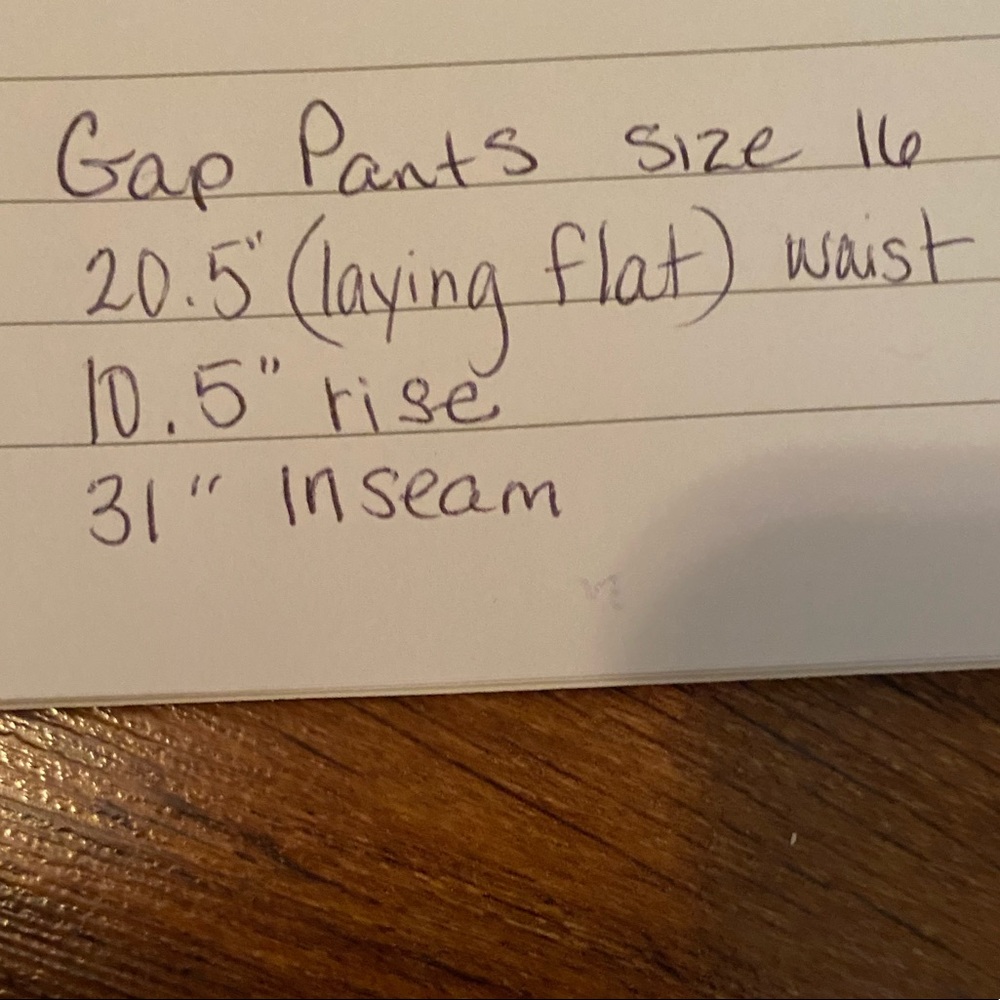 Gap Pants size 16
20.5" (laying flat) waist
10.5" rise
31" Inseam